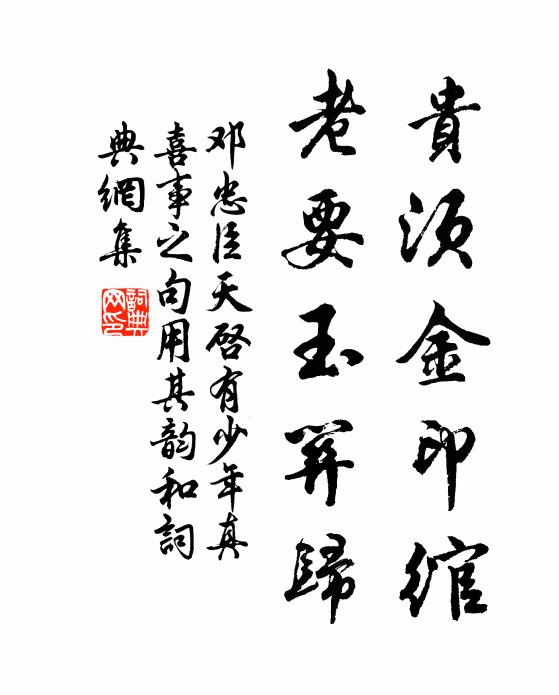 貴須金印綰
老要玉關歸
邓忠臣天啓有少年真
喜事之句用其韵和詞
典網集
詞典
网印